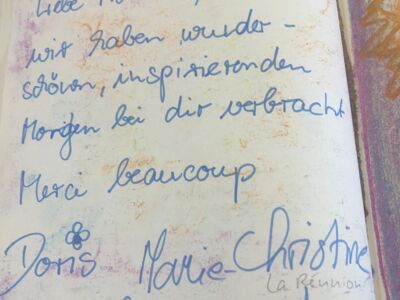 Liebe
wir haben wunder-
schönen, inspirierenden
Morgen bei dir verbracht
Merci beaucoup
Doris Marie-Christine
La Réunion